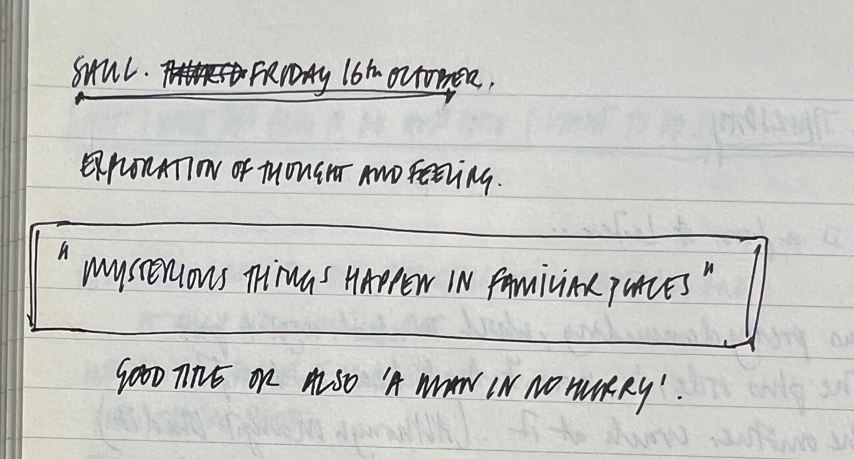 SAUL. THURSD FRIDAY 16th OCTOBER.
EXPLORATION OF THOUGHT AND FEELING.
"MYSTERIOUS THINGS HAPPEN IN FAMILIAR PLACES"
GOOD TITLE OR ALSO 'A MAN IN NO HURRY'.